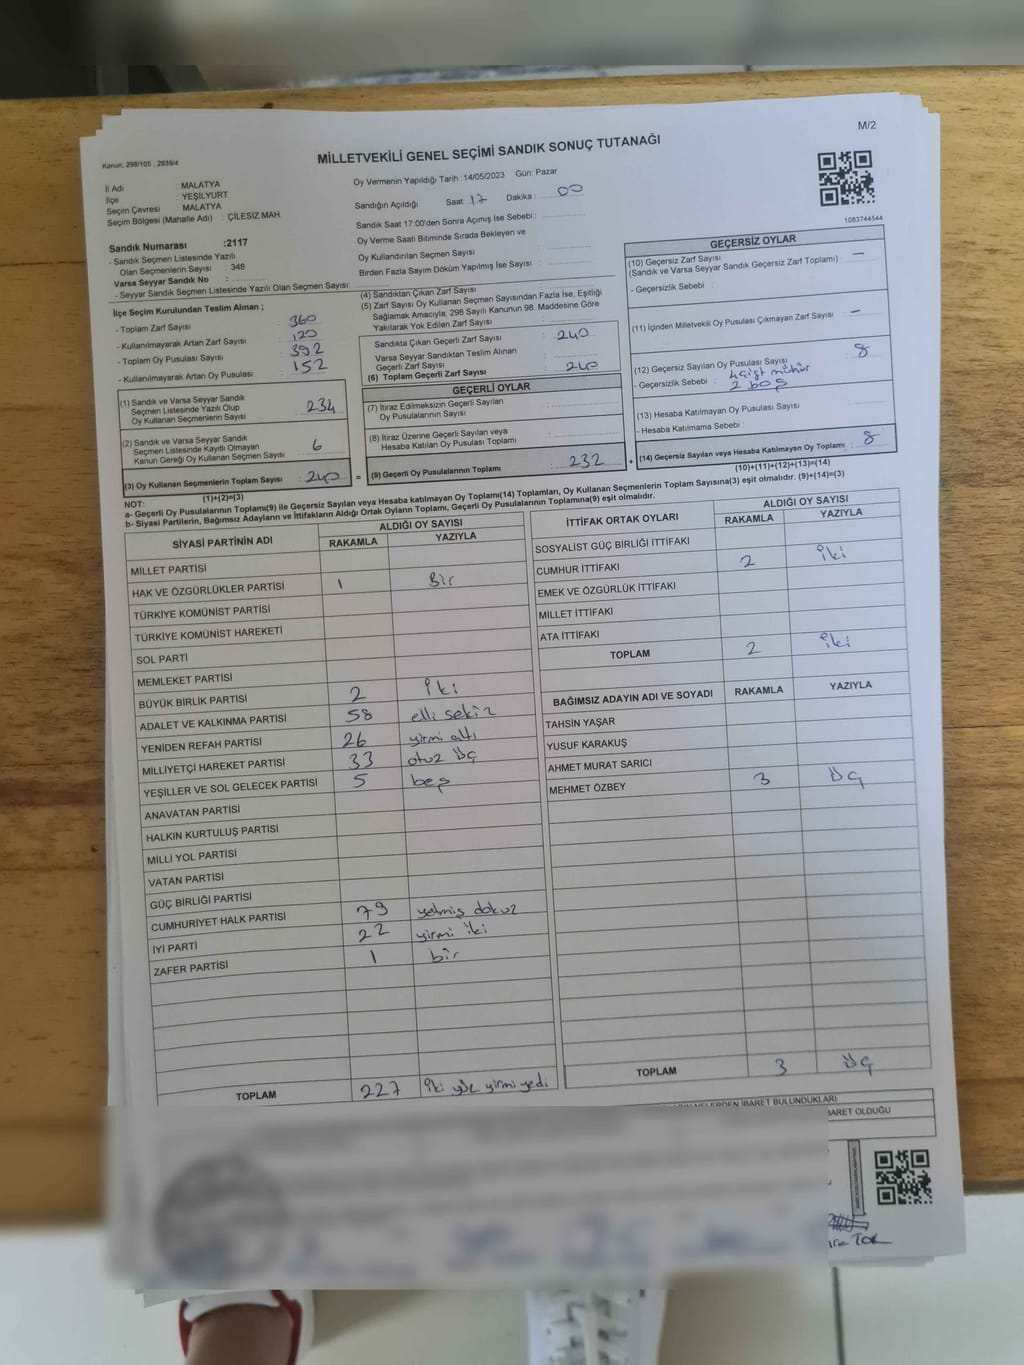 M/2
Kanun: 298/105 , 2839/4
MİLLETVEKİLİ GENEL SEÇİMİ SANDIK SONUÇ TUTANAĞI
İl Adı : MALATYA
İlçe : YEŞİLYURT
Seçim Çevresi : MALATYA
Seçim Bölgesi (Mahalle Adı) : ÇİLESİZ MAH.
Sandık Numarası :2117
- Sandık Seçmen Listesinde Yazılı
Olan Seçmenlerin Sayısı : 348
Varsa Seyyar Sandık No :
- Seyyar Sandık Seçmen Listesinde Yazılı Olan Seçmen Sayısı:
Oy Vermenin Yapıldığı Tarih : 14/05/2023 Gün: Pazar
Sandığın Açıldığı Saat: 17 Dakika : 00
Sandık Saat 17:00'den Sonra Açımış İse Sebebi :
Oy Verme Saati Bitiminde Sırada Bekleyen ve
Oy Kullandırılan Seçmen Sayısı :
Birden Fazla Sayım Döküm Yapılmış İse Sayısı :
1083744544
İlçe Seçim Kurulundan Teslim Alınan ;
- Toplam Zarf Sayısı : 360
- Kullanılmayarak Artan Zarf Sayısı : 120
- Toplam Oy Pusulası Sayısı : 392
- Kullanılmayarak Artan Oy Pusulası : 152
(1) Sandık ve Varsa Seyyar Sandık
Seçmen Listesinde Yazılı Olup
Oy Kullanan Seçmenlerin Sayısı : 234
(2) Sandık ve Varsa Seyyar Sandık
Seçmen Listesinde Kayıtlı Olmayan
Kanun Gereği Oy Kullanan Seçmen Sayısı : 6
(3) Oy Kullanan Seçmenlerin Toplam Sayısı : 240
(1)+(2)=(3)
(4) Sandıktan Çıkan Zarf Sayısı :
(5) Zarf Sayısı Oy Kullanan Seçmen Sayısından Fazla İse, Eşitliği
Sağlamak Amacıyla; 298 Sayılı Kanunun 98. Maddesine Göre
Yakılarak Yok Edilen Zarf Sayısı :
Sandıkta Çıkan Geçerli Zarf Sayısı : 240
Varsa Seyyar Sandıktan Teslim Alınan
Geçerli Zarf Sayısı :
(6) Toplam Geçerli Zarf Sayısı : 240
GEÇERLİ OYLAR
(7) İtiraz Edilmeksizin Geçerli Sayılan
Oy Pusulalarının Sayısı :
(8) İtiraz Üzerine Geçerli Sayılan veya
Hesaba Katılan Oy Pusulası Toplamı :
= (9) Geçerli Oy Pusulalarının Toplamı : 232
GEÇERSİZ OYLAR
(10) Geçersiz Zarf Sayısı : —
(Sandık ve Varsa Seyyar Sandık Geçersiz Zarf Toplamı)
- Geçersizlik Sebebi :
(11) İçinden Milletvekili Oy Pusulası Çıkmayan Zarf Sayısı : —
(12) Geçersiz Sayılan Oy Pusulası Sayısı : 8
- Geçersizlik Sebebi : mühür
2 boş
(13) Hesaba Katılmayan Oy Pusulası Sayısı :
- Hesaba Katılmama Sebebi :
+ (14) Geçersiz Sayılan veya Hesaba Katılmayan Oy Toplamı : 8
(10)+(11)+(12)+(13)=(14)
NOT:
a- Geçerli Oy Pusulalarının Toplamı(9) ile Geçersiz Sayılan veya Hesaba katılmayan Oy Toplamı(14) Toplamları, Oy Kullanan Seçmenlerin Toplam Sayısına(3) eşit olmalıdır. (9)+(14)=(3)
b- Siyasi Partilerin, Bağımsız Adayların ve İttifakların Aldığı Ortak Oyların Toplamı, Geçerli Oy Pusulalarının Toplamına(9) eşit olmalıdır.
SİYASİ PARTİNİN ADI ALDIĞI OY SAYISI
RAKAMLA YAZIYLA
MİLLET PARTİSİ
HAK VE ÖZGÜRLÜKLER PARTİSİ 1 Bir
TÜRKİYE KOMÜNİST PARTİSİ
TÜRKİYE KOMÜNİST HAREKETİ
SOL PARTİ
MEMLEKET PARTİSİ
BÜYÜK BİRLİK PARTİSİ 2 iki
ADALET VE KALKINMA PARTİSİ 58 elli sekiz
YENİDEN REFAH PARTİSİ 26 yirmi altı
MİLLİYETÇİ HAREKET PARTİSİ 33 otuz üç
YEŞİLLER VE SOL GELECEK PARTİSİ 5 beş
ANAVATAN PARTİSİ
HALKIN KURTULUŞ PARTİSİ
MİLLİ YOL PARTİSİ
VATAN PARTİSİ
GÜÇ BİRLİĞİ PARTİSİ
CUMHURİYET HALK PARTİSİ 79 yetmiş dokuz
İYİ PARTİ 22 yirmi iki
ZAFER PARTİSİ 1 bir
TOPLAM 227 iki yüz yirmi yedi
İTTİFAK ORTAK OYLARI ALDIĞI OY SAYISI
RAKAMLA YAZIYLA
SOSYALİST GÜÇ BİRLİĞİ İTTİFAKI
CUMHUR İTTİFAKI 2 iki
EMEK VE ÖZGÜRLÜK İTTİFAKI
MİLLET İTTİFAKI
ATA İTTİFAKI
TOPLAM 2 iki
BAĞIMSIZ ADAYIN ADI VE SOYADI RAKAMLA YAZIYLA
TAHSİN YAŞAR
YUSUF KARAKUŞ
AHMET MURAT SARICI
MEHMET ÖZBEY 3 üç
TOPLAM 3 üç
NELERDEN İBARET BULUNDUKLARI
İBARET OLDUĞU
TOK